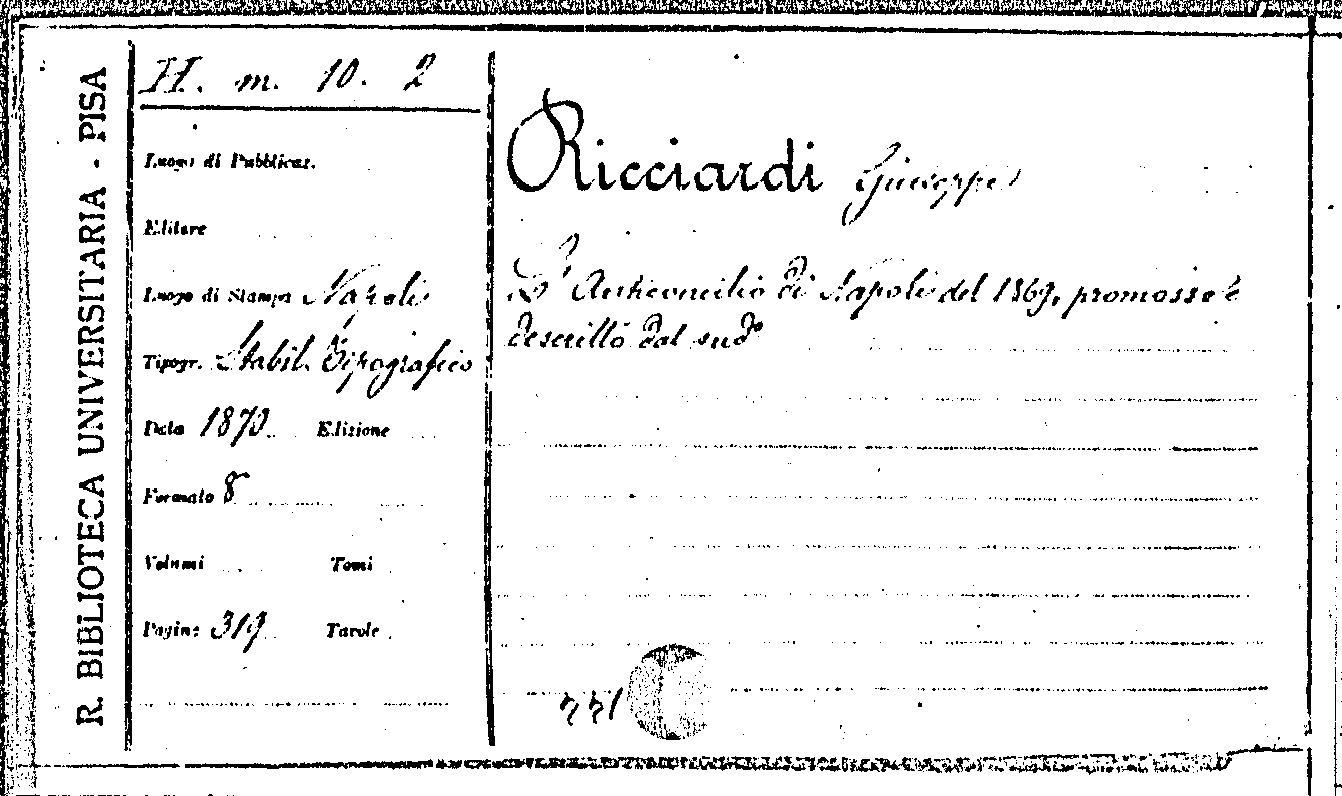 R. BIBLIOTECA UNIVERSITARIA - PISA
H. m. 10. 2
Luogo di Pubblicaz.
Editore
Luogo di Stampa Napoli
Tipogr. Stabil. Tipografico
Data 1870 Edizione
Formato 8
Volumi Tomi
Pagine 319 Tavole
Ricciardi Giuseppe
L' Anticoncilio di Napoli del 1869, promosso e
descritto dal sudº